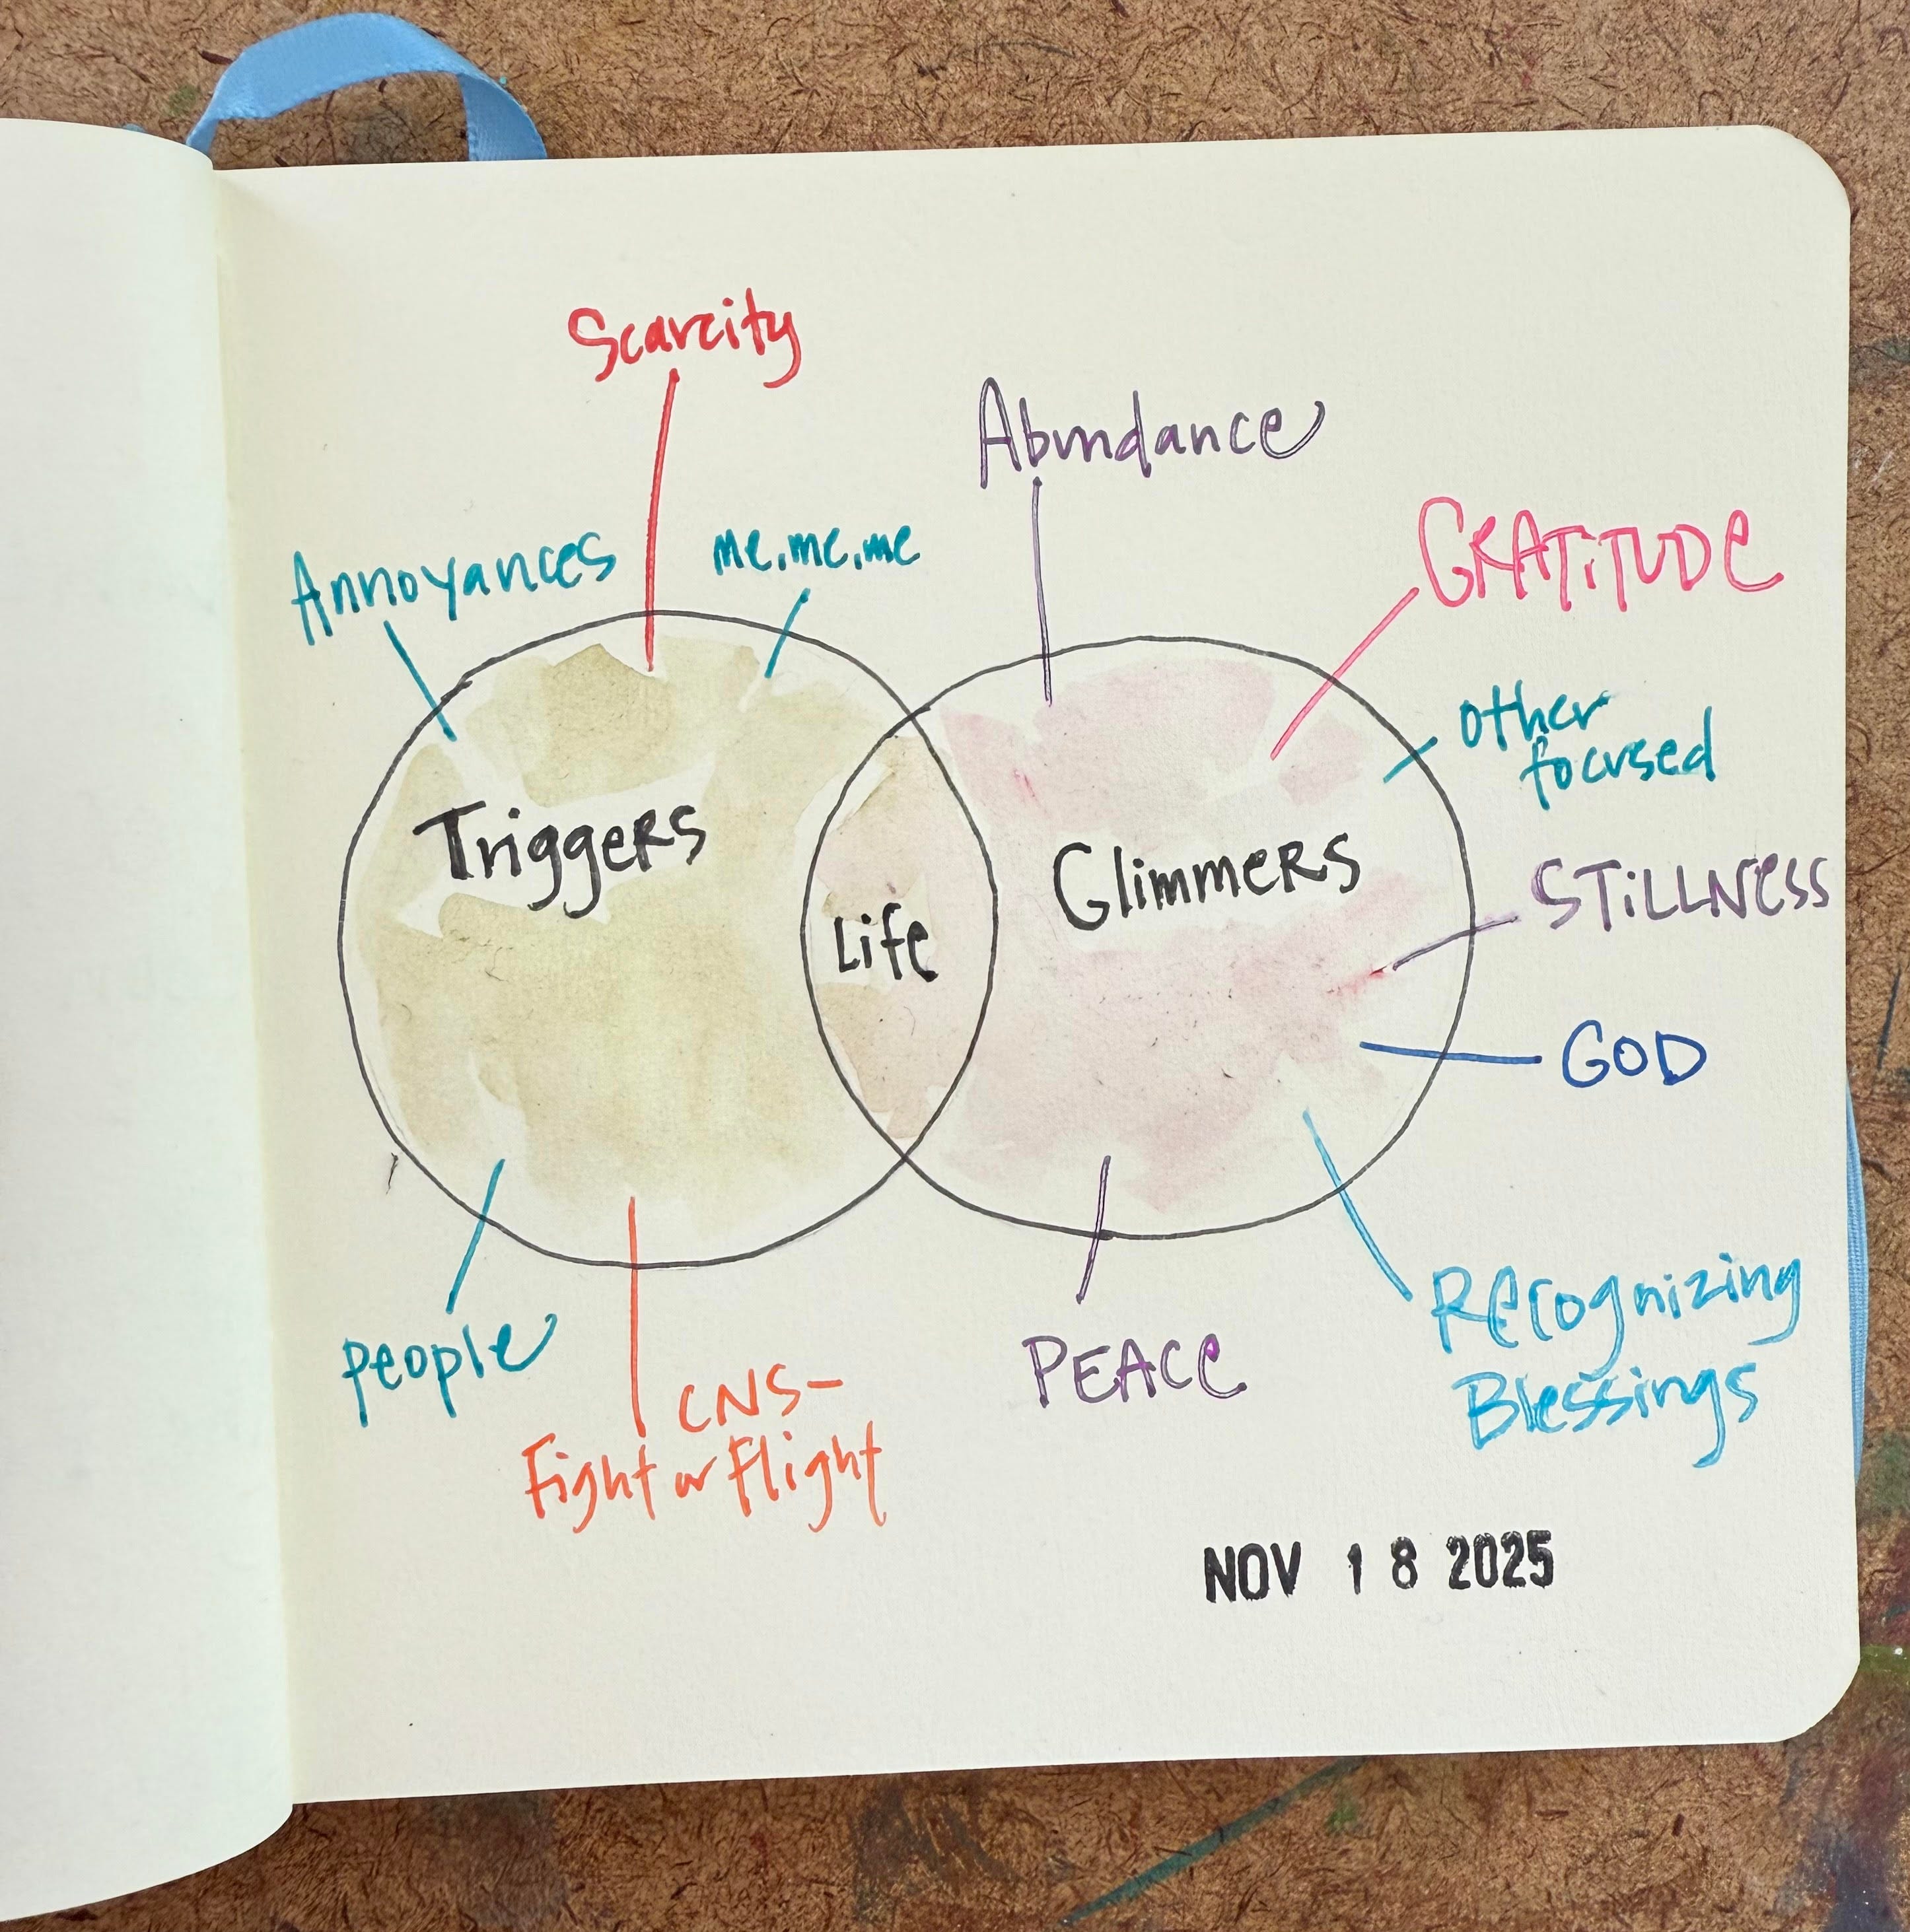 Scarcity
Abundance
Annoyances
me.me.me
GRATiTUDe
other
focused
Triggers
Glimmers
STiLLNess
Life
GOD
people
PEACe
Recognizing
Blessings
CNS-
Fight or Flight
NOV 18 2025